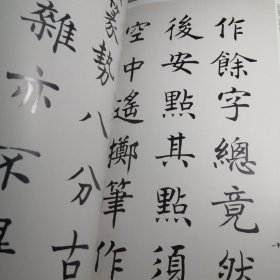 作餘字總竟然
後安點其點須
空中遙擲筆作
勢八分古
雜亦不